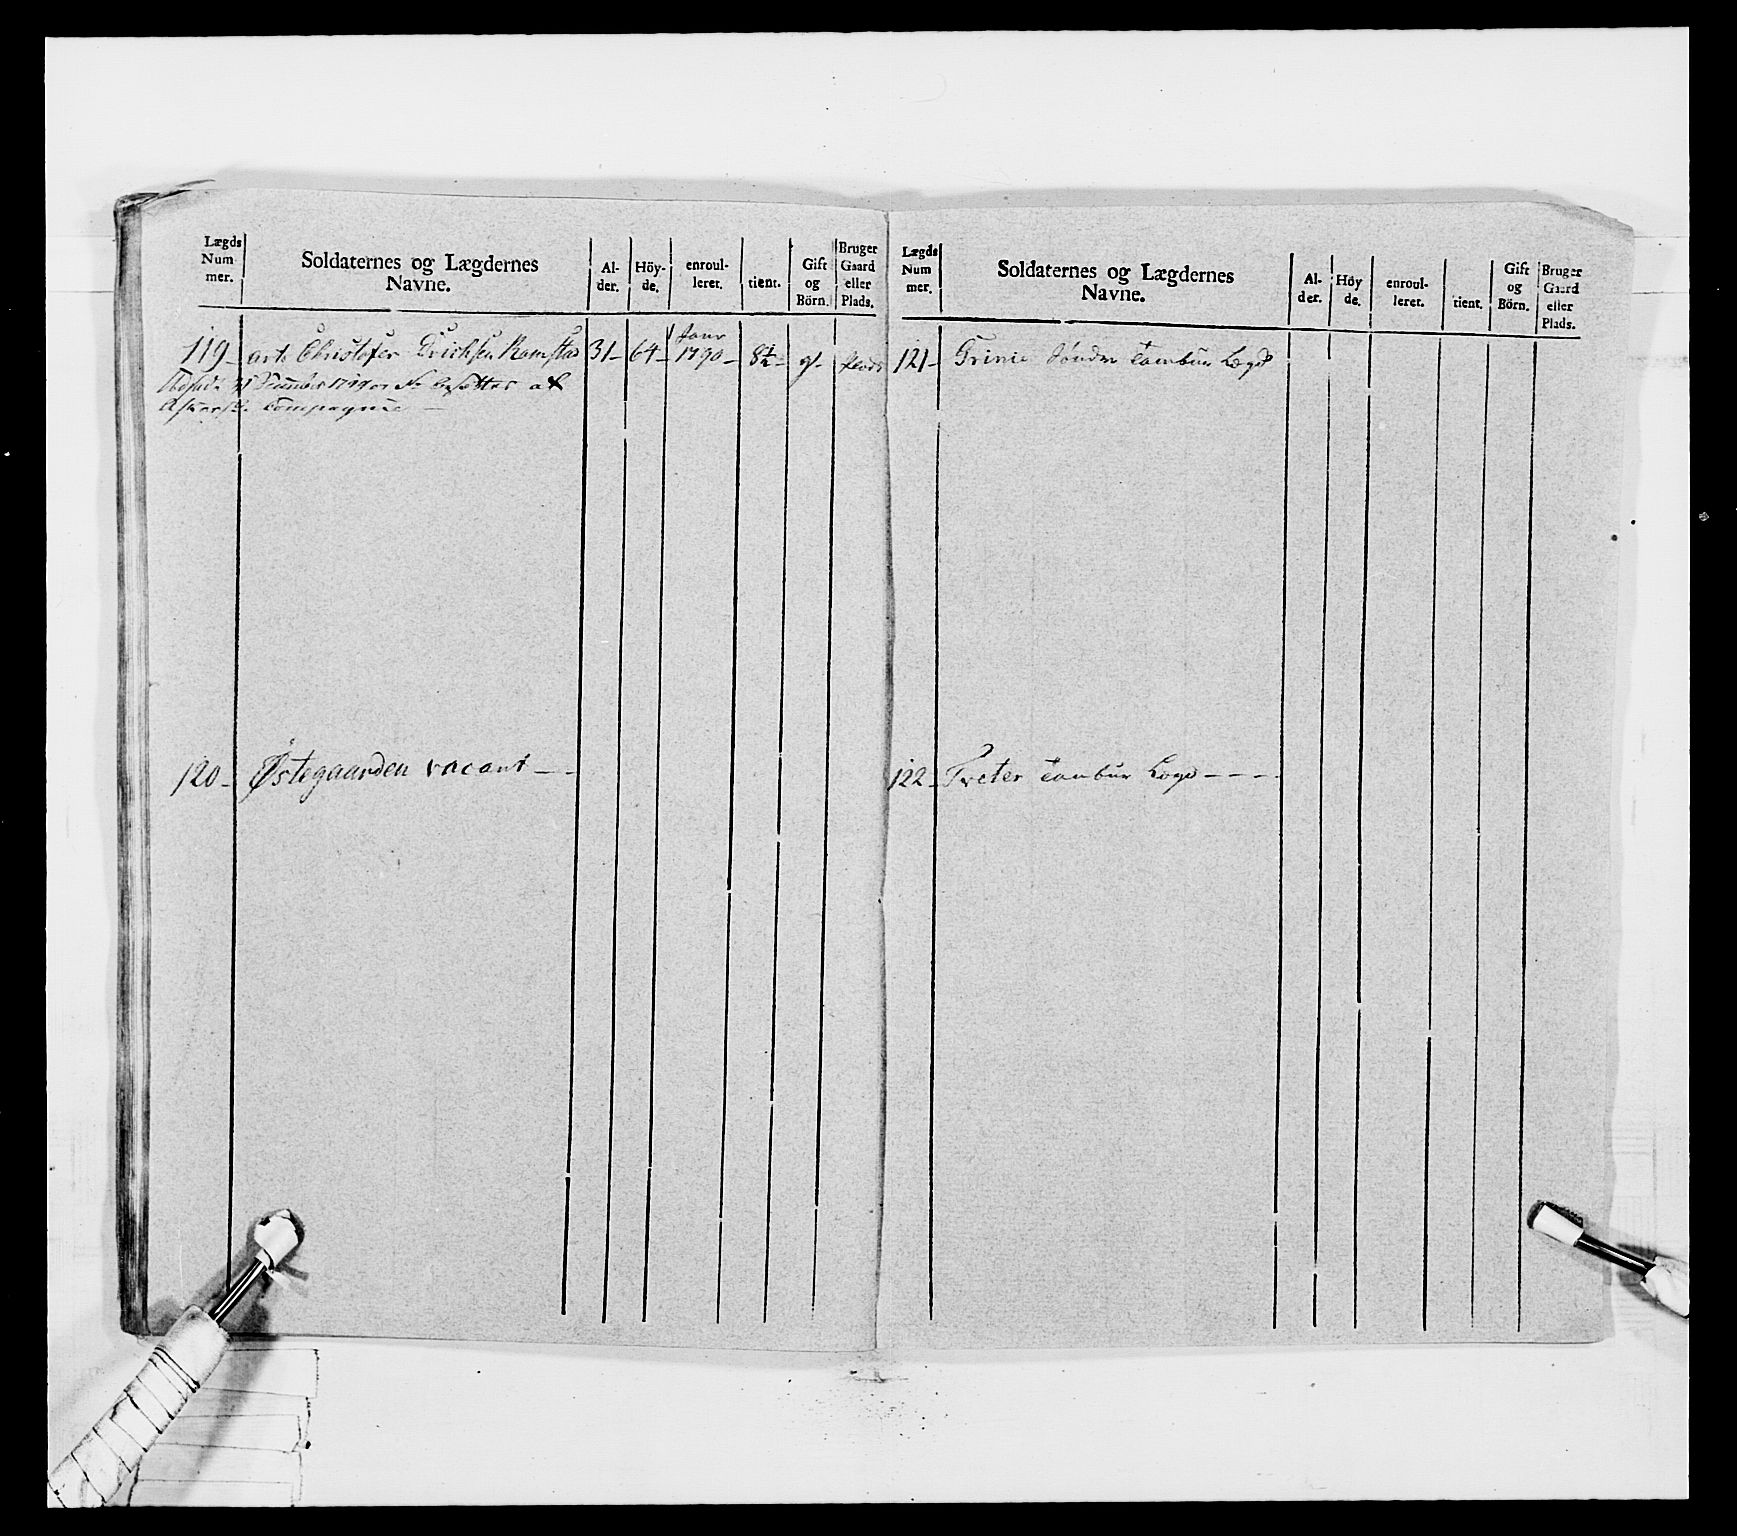 Lægds Num mer.
Soldaternes og Lægdernes Navne.
Al- der.
Höy- de.
enroul- leret.
tient.
Gift og Börn.
Bruger Gaard eller Plads.
119- art. Christofer Erichsen Ramstad 31- 64- 1 Janr 1790- 8½- g/- Plads
31 December 1799 af
Compagnie
120- Østegaarden vacant - -
Lægds Num mer.
Soldaternes og Lægdernes Navne.
Al- der.
Höy de.
enroul- leret.
tient.
Gift og Börn.
Bruger Gaard eller Plads.
121- Grinie Søndre Tambur Lægd
122- Tveter Tambur Lægd - - - -